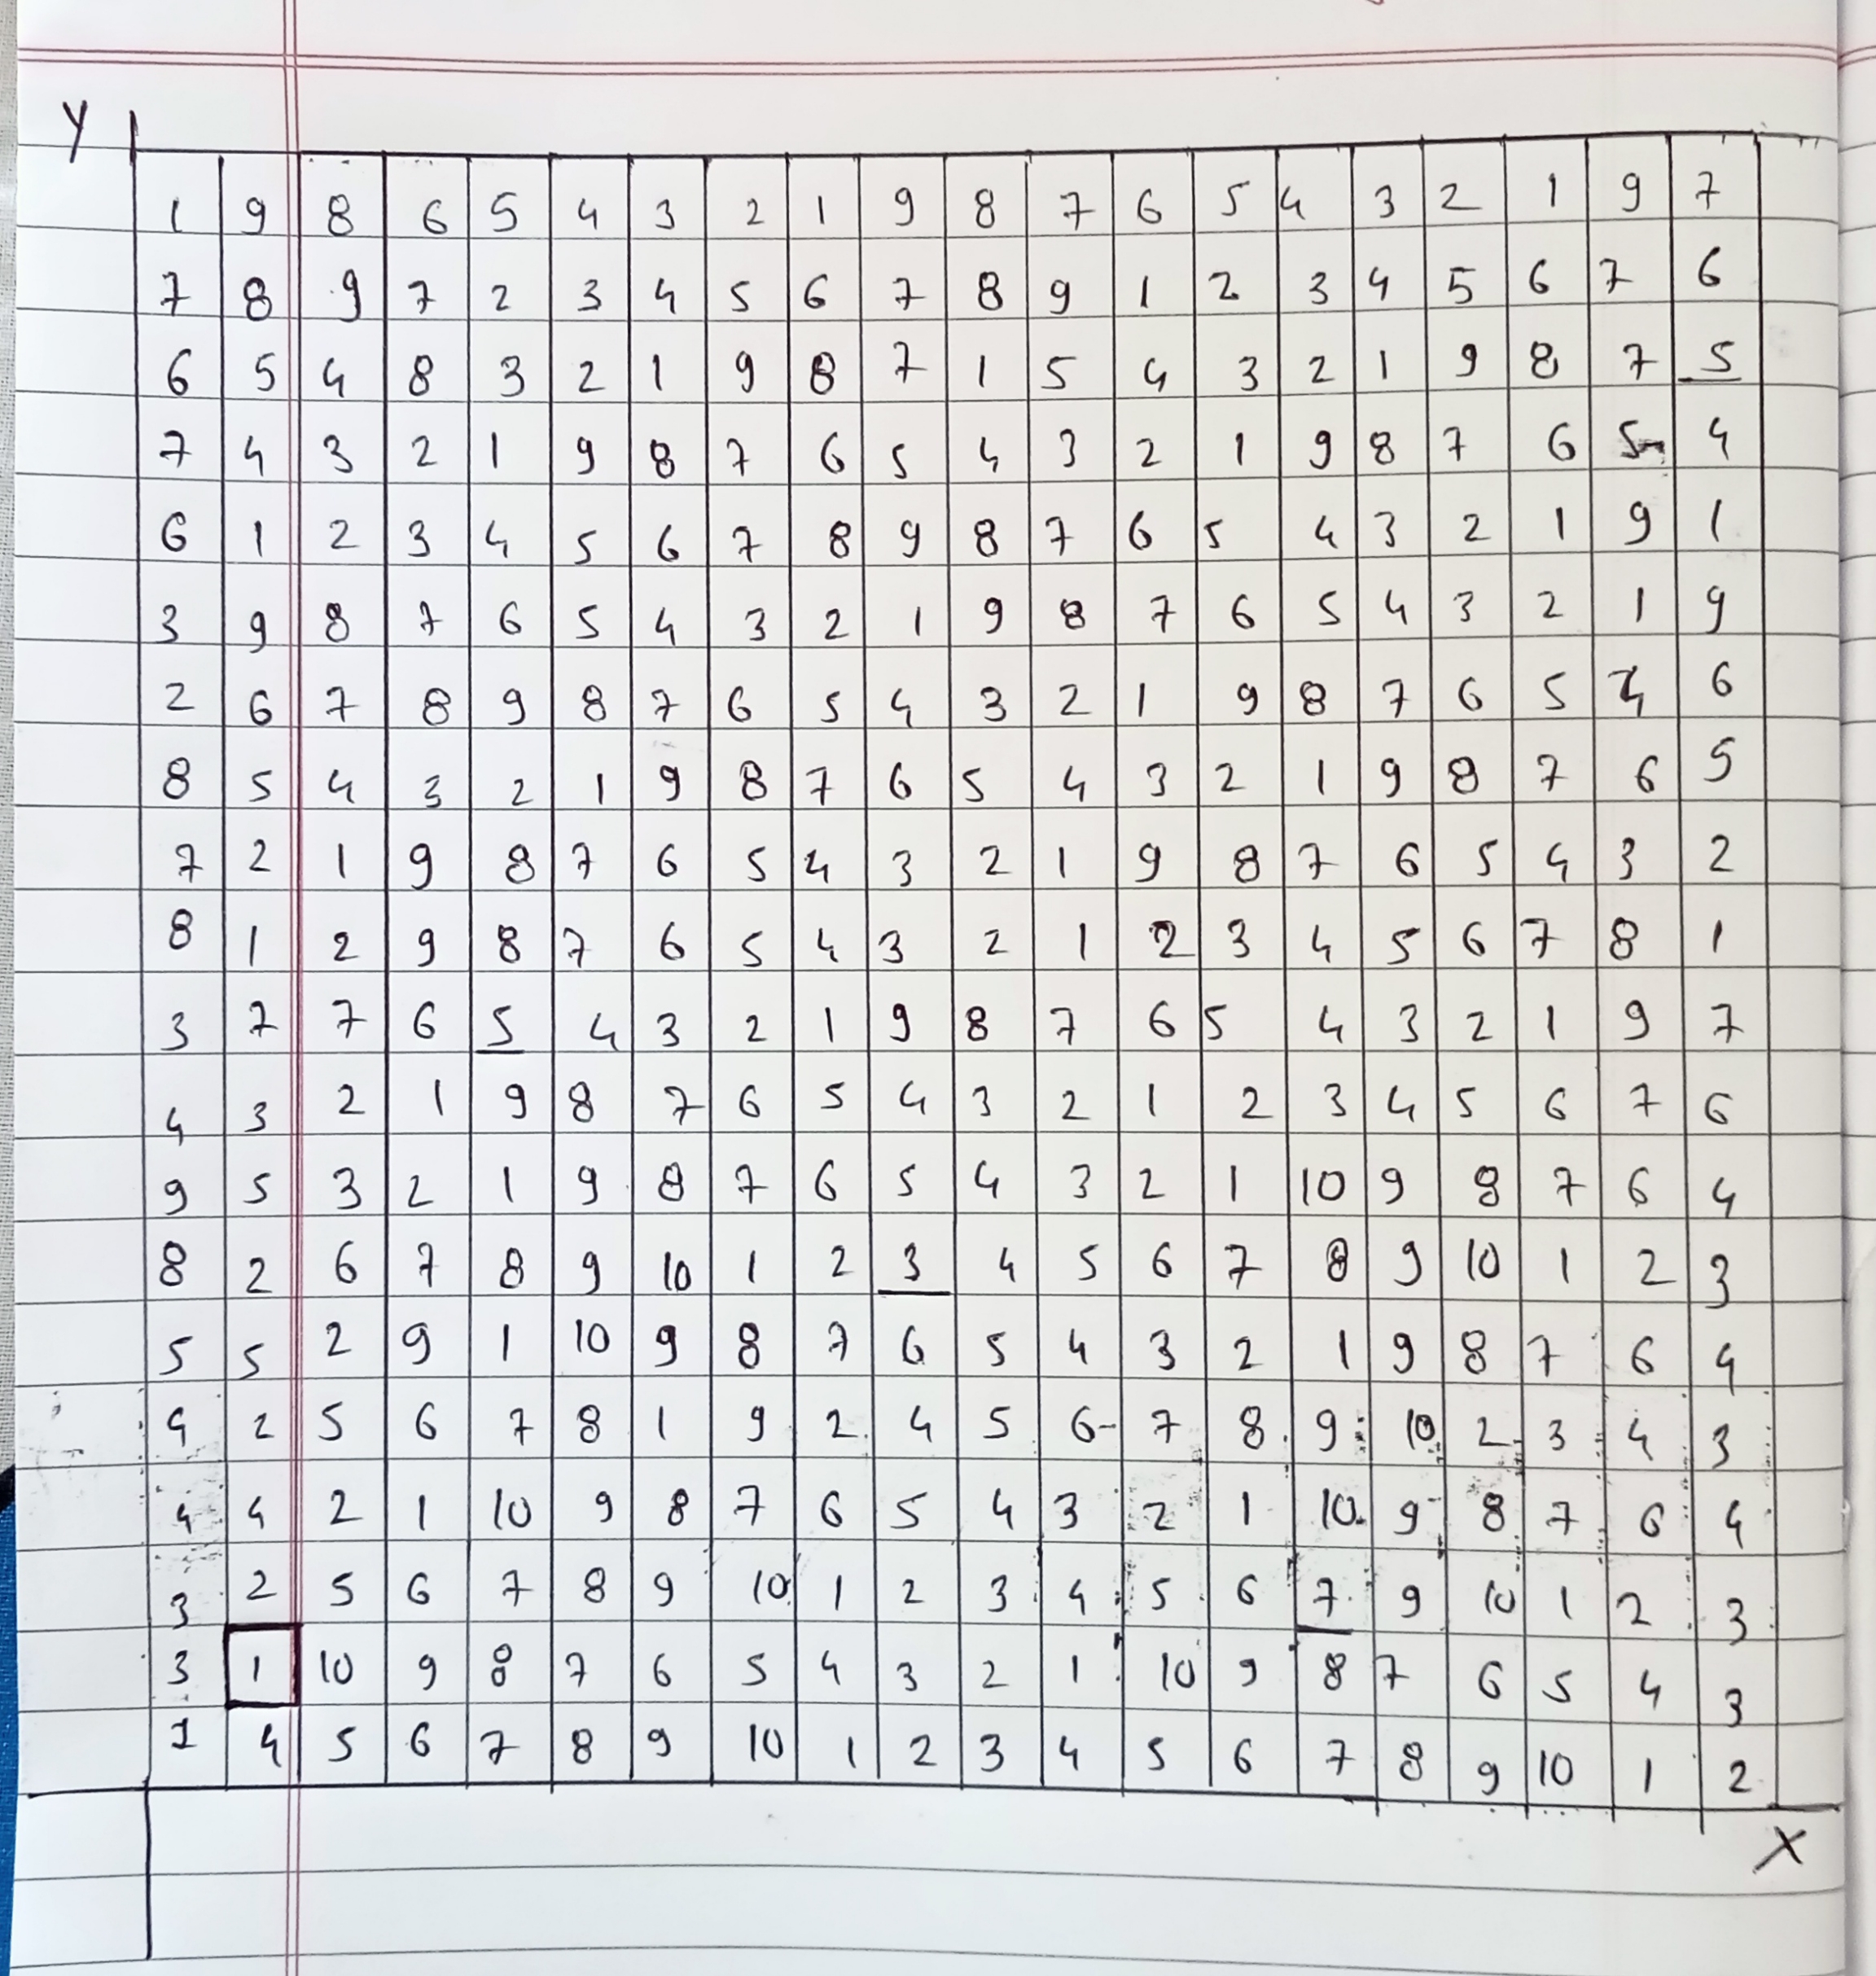 Y
1 9 8 6 5 4 3 2 1 9 8 7 6 5 4 3 2 1 9 7
7 8 9 7 2 3 4 5 6 7 8 9 1 2 3 4 5 6 7 6
6 5 4 8 3 2 1 9 8 7 1 5 4 3 2 1 9 8 7 5
7 4 3 2 1 9 8 7 6 5 4 3 2 1 9 8 7 6 5 4
6 1 2 3 4 5 6 7 8 9 8 7 6 5 4 3 2 1 9 1
3 9 8 7 6 5 4 3 2 1 9 8 7 6 5 4 3 2 1 9
2 6 7 8 9 8 7 6 5 4 3 2 1 9 8 7 6 5 4 6
8 5 4 3 2 1 9 8 7 6 5 4 3 2 1 9 8 7 6 5
7 2 1 9 8 7 6 5 4 3 2 1 9 8 7 6 5 4 3 2
8 1 2 9 8 7 6 5 4 3 2 1 2 3 4 5 6 7 8 1
3 7 7 6 5 4 3 2 1 9 8 7 6 5 4 3 2 1 9 7
4 3 2 1 9 8 7 6 5 4 3 2 1 2 3 4 5 6 7 6
9 5 3 2 1 9 8 7 6 5 4 3 2 1 10 9 8 7 6 4
8 2 6 7 8 9 10 1 2 3 4 5 6 7 8 9 10 1 2 3
5 5 2 9 1 10 9 8 7 6 5 4 3 2 1 9 8 7 6 4
4 2 5 6 7 8 1 9 2 4 5 6 7 8 9 10 2 3 4 3
4 4 2 1 10 9 8 7 6 5 4 3 2 1 10 9 8 7 6 4
3 2 5 6 7 8 9 10 1 2 3 4 5 6 7 9 10 1 2 3
3 1 10 9 8 7 6 5 4 3 2 1 10 9 8 7 6 5 4 3
1 4 5 6 7 8 9 10 1 2 3 4 5 6 7 8 9 10 1 2
X